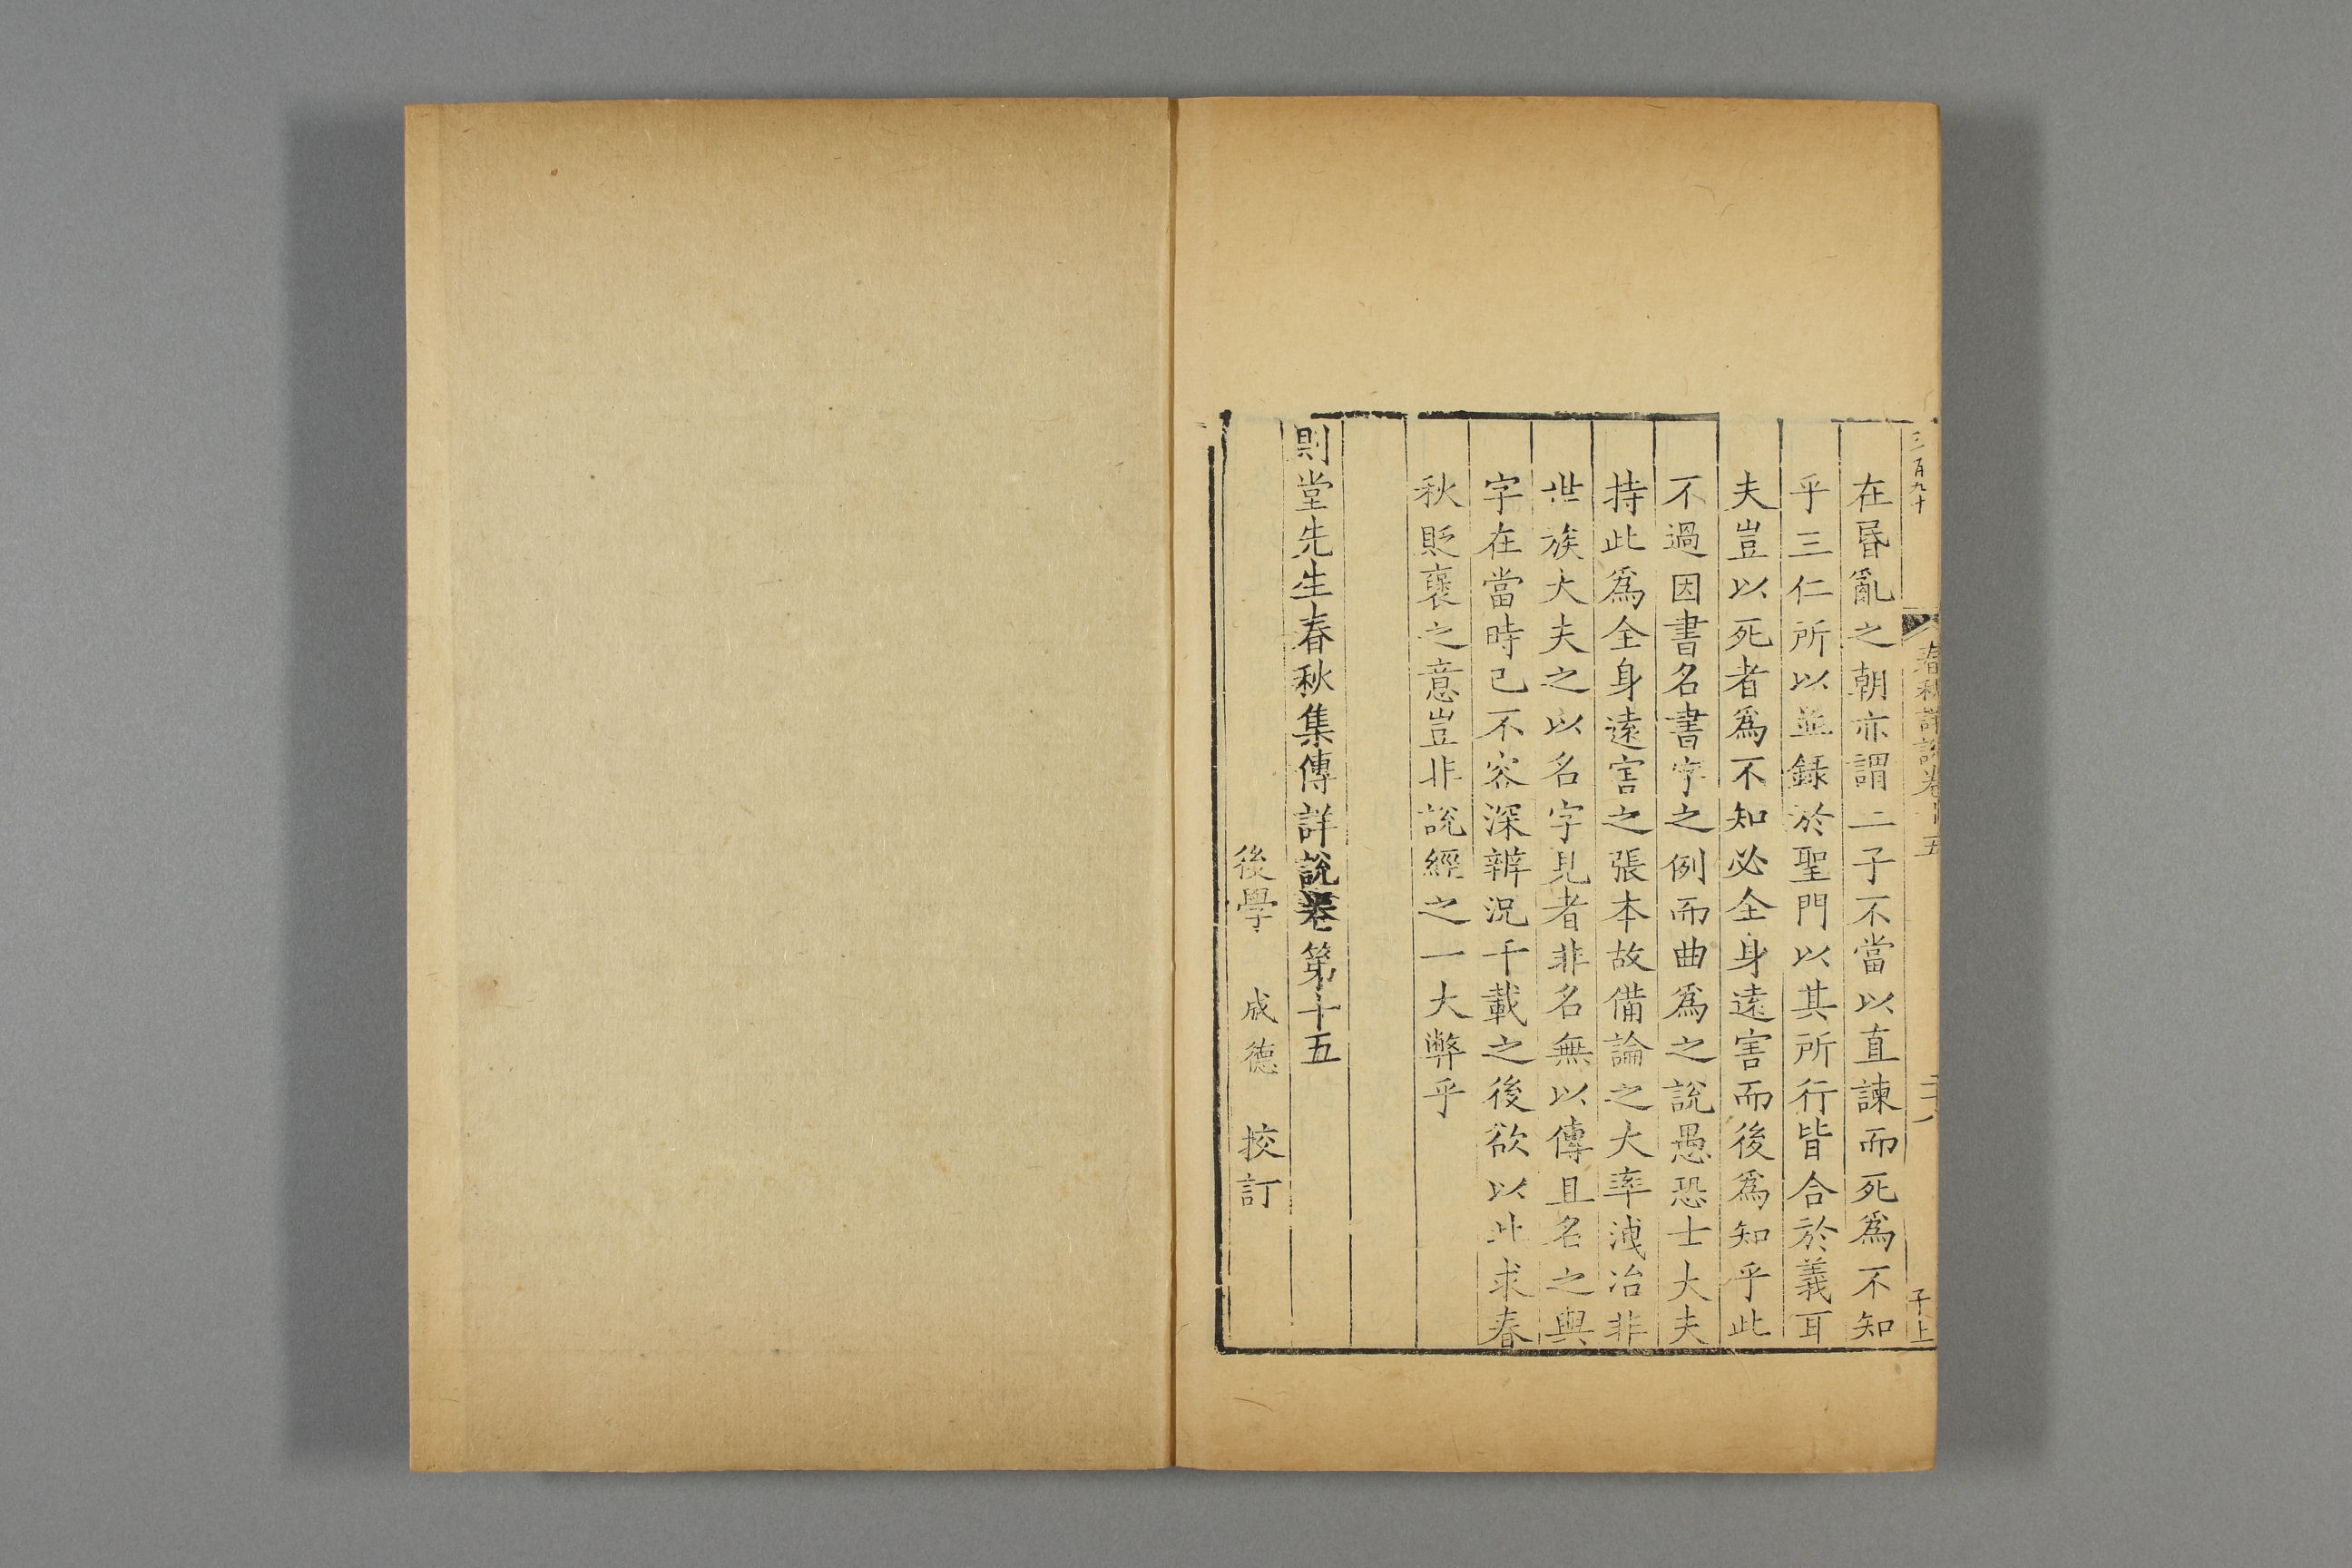 三百九十
春秋詳說卷十五
二十八
子上
在昬亂之朝亦謂二子不當以直諫而死爲不知
乎三仁所以並錄於聖門以其所行皆合於義耳
夫豈以死者爲不知必全身遠害而後爲知乎此
不過因書名書字之例而曲爲之說愚恐士大夫
持此爲全身遠害之張本故備論之大率洩冶非
世族大夫之以名字見者非名無以傳且名之與
字在當時已不容深辨況千載之後欲以此求春
秋貶襃之意豈非說經之一大弊乎
則堂先生春秋集傳詳說卷第十五
後學 成德 挍訂